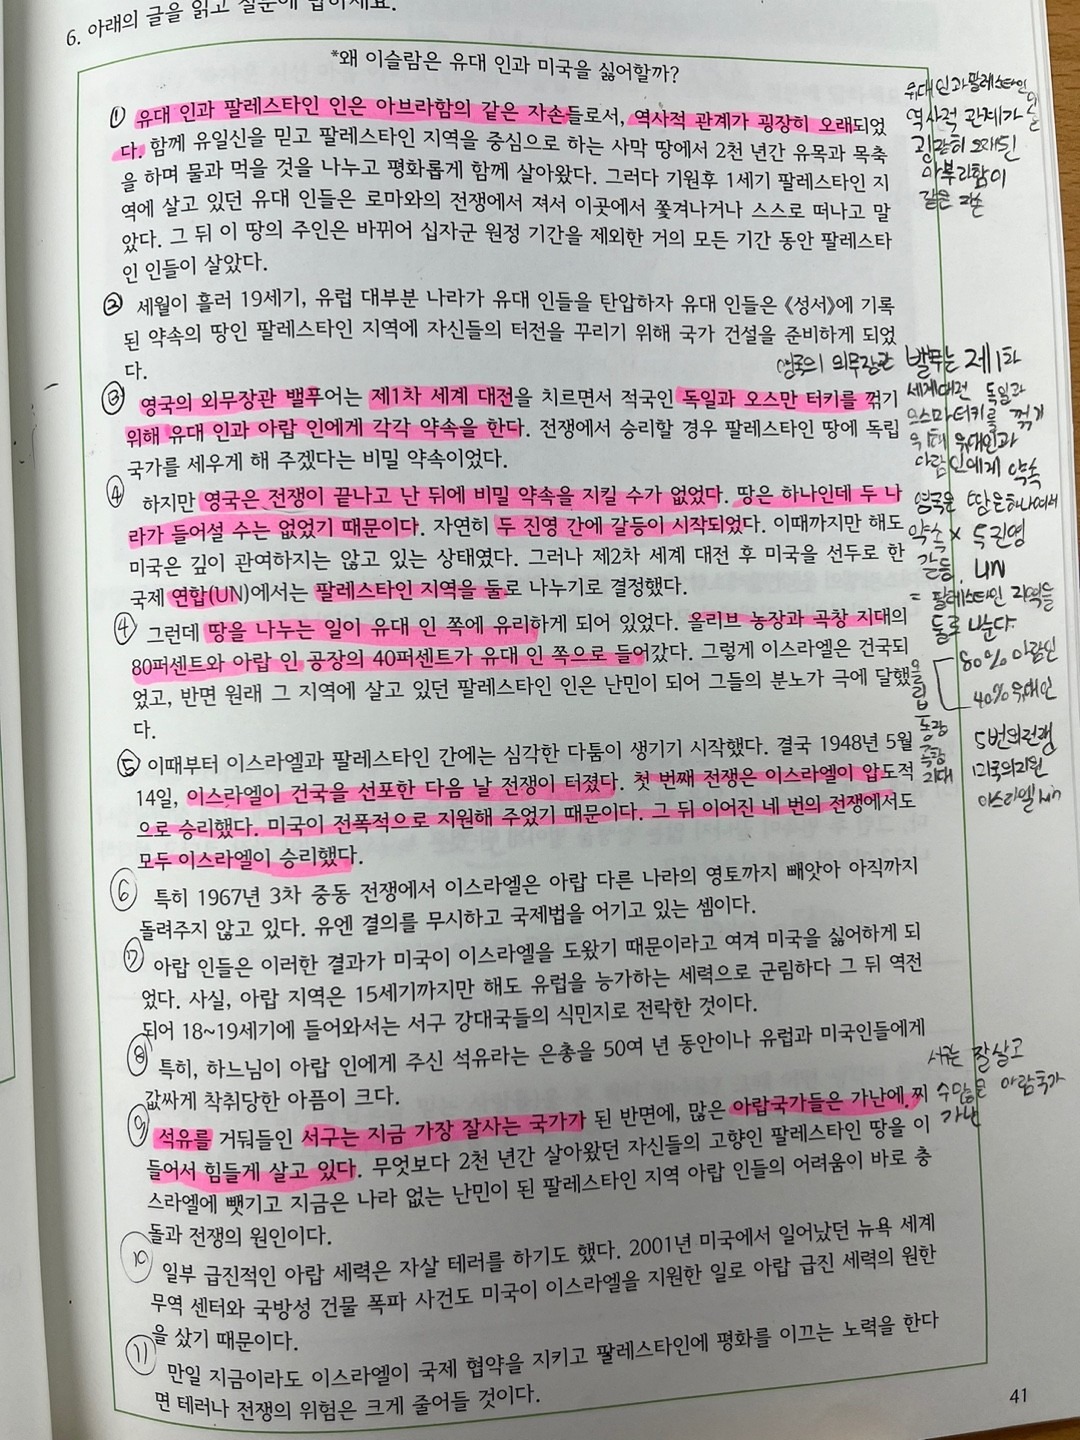 6. 아래의 글을 읽고 질문에 답하세요.
*왜 이슬람은 유대 인과 미국을 싫어할까?
① 유대 인과 팔레스타인 인은 아브라함의 같은 자손들로서, 역사적 관계가 굉장히 오래되었
다. 함께 유일신을 믿고 팔레스타인 지역을 중심으로 하는 사막 땅에서 2천 년간 유목과 목축
을 하며 물과 먹을 것을 나누고 평화롭게 함께 살아왔다. 그러다 기원후 1세기 팔레스타인 지
역에 살고 있던 유대 인들은 로마와의 전쟁에서 져서 이곳에서 쫓겨나거나 스스로 떠나고 말
았다. 그 뒤 이 땅의 주인은 바뀌어 십자군 원정 기간을 제외한 거의 모든 기간 동안 팔레스타
인 인들이 살았다.
② 세월이 흘러 19세기, 유럽 대부분 나라가 유대 인들을 탄압하자 유대 인들은 《성서》에 기록
된 약속의 땅인 팔레스타인 지역에 자신들의 터전을 꾸리기 위해 국가 건설을 준비하게 되었
다.
③ 영국의 외무장관 밸푸어는 제1차 세계 대전을 치르면서 적국인 독일과 오스만 터키를 꺾기
위해 유대 인과 아랍 인에게 각각 약속을 한다. 전쟁에서 승리할 경우 팔레스타인 땅에 독립
국가를 세우게 해 주겠다는 비밀 약속이었다.
④ 하지만 영국은 전쟁이 끝나고 난 뒤에 비밀 약속을 지킬 수가 없었다. 땅은 하나인데 두 나
라가 들어설 수는 없었기 때문이다. 자연히 두 진영 간에 갈등이 시작되었다. 이때까지만 해도
미국은 깊이 관여하지는 않고 있는 상태였다. 그러나 제2차 세계 대전 후 미국을 선두로 한
국제 연합(UN)에서는 팔레스타인 지역을 둘로 나누기로 결정했다.
④ 그런데 땅을 나누는 일이 유대 인 쪽에 유리하게 되어 있었다. 올리브 농장과 곡창 지대의
80퍼센트와 아랍 인 공장의 40퍼센트가 유대 인 쪽으로 들어갔다. 그렇게 이스라엘은 건국되
었고, 반면 원래 그 지역에 살고 있던 팔레스타인 인은 난민이 되어 그들의 분노가 극에 달했
다.
⑤ 이때부터 이스라엘과 팔레스타인 간에는 심각한 다툼이 생기기 시작했다. 결국 1948년 5월
14일, 이스라엘이 건국을 선포한 다음 날 전쟁이 터졌다. 첫 번째 전쟁은 이스라엘이 압도적
으로 승리했다. 미국이 전폭적으로 지원해 주었기 때문이다. 그 뒤 이어진 네 번의 전쟁에서도
모두 이스라엘이 승리했다.
⑥ 특히 1967년 3차 중동 전쟁에서 이스라엘은 아랍 다른 나라의 영토까지 빼앗아 아직까지
돌려주지 않고 있다. 유엔 결의를 무시하고 국제법을 어기고 있는 셈이다.
⑦ 아랍 인들은 이러한 결과가 미국이 이스라엘을 도왔기 때문이라고 여겨 미국을 싫어하게 되
었다. 사실, 아랍 지역은 15세기까지만 해도 유럽을 능가하는 세력으로 군림하다 그 뒤 역전
되어 18~19세기에 들어와서는 서구 강대국들의 식민지로 전락한 것이다.
⑧ 특히, 하느님이 아랍 인에게 주신 석유라는 은총을 50여 년 동안이나 유럽과 미국인들에게
값싸게 착취당한 아픔이 크다.
⑨ 석유를 거둬들인 서구는 지금 가장 잘사는 국가가 된 반면에, 많은 아랍국가들은 가난에 찌
들어서 힘들게 살고 있다. 무엇보다 2천 년간 살아왔던 자신들의 고향인 팔레스타인 땅을 이
스라엘에 뺏기고 지금은 나라 없는 난민이 된 팔레스타인 지역 아랍 인들의 어려움이 바로 충
돌과 전쟁의 원인이다.
⑩ 일부 급진적인 아랍 세력은 자살 테러를 하기도 했다. 2001년 미국에서 일어났던 뉴욕 세계
무역 센터와 국방성 건물 폭파 사건도 미국이 이스라엘을 지원한 일로 아랍 급진 세력의 원한
을 샀기 때문이다.
⑪ 만일 지금이라도 이스라엘이 국제 협약을 지키고 팔레스타인에 평화를 이끄는 노력을 한다
면 테러나 전쟁의 위험은 크게 줄어들 것이다.
유대인과 팔레스타인
역사적 관계가
굉장히 오래된
아브라함이
같은 자손
영국의 외무장관 밸푸는 제1차
세계대전 독일과
오스마터키를 꺾기
위해 유대인과
아랍인에게 약속
영국은 땅은하나여서
약속 x 두진영
갈등, UN
= 팔레스타인 지역을
둘로 나눈다
올리브
농장
곡창
지대
80% 아랍인
40% 유대인
5번의전쟁
미국의지원
이스라엘 win
서구는 잘살고
수많은 아랍국가
가난
41